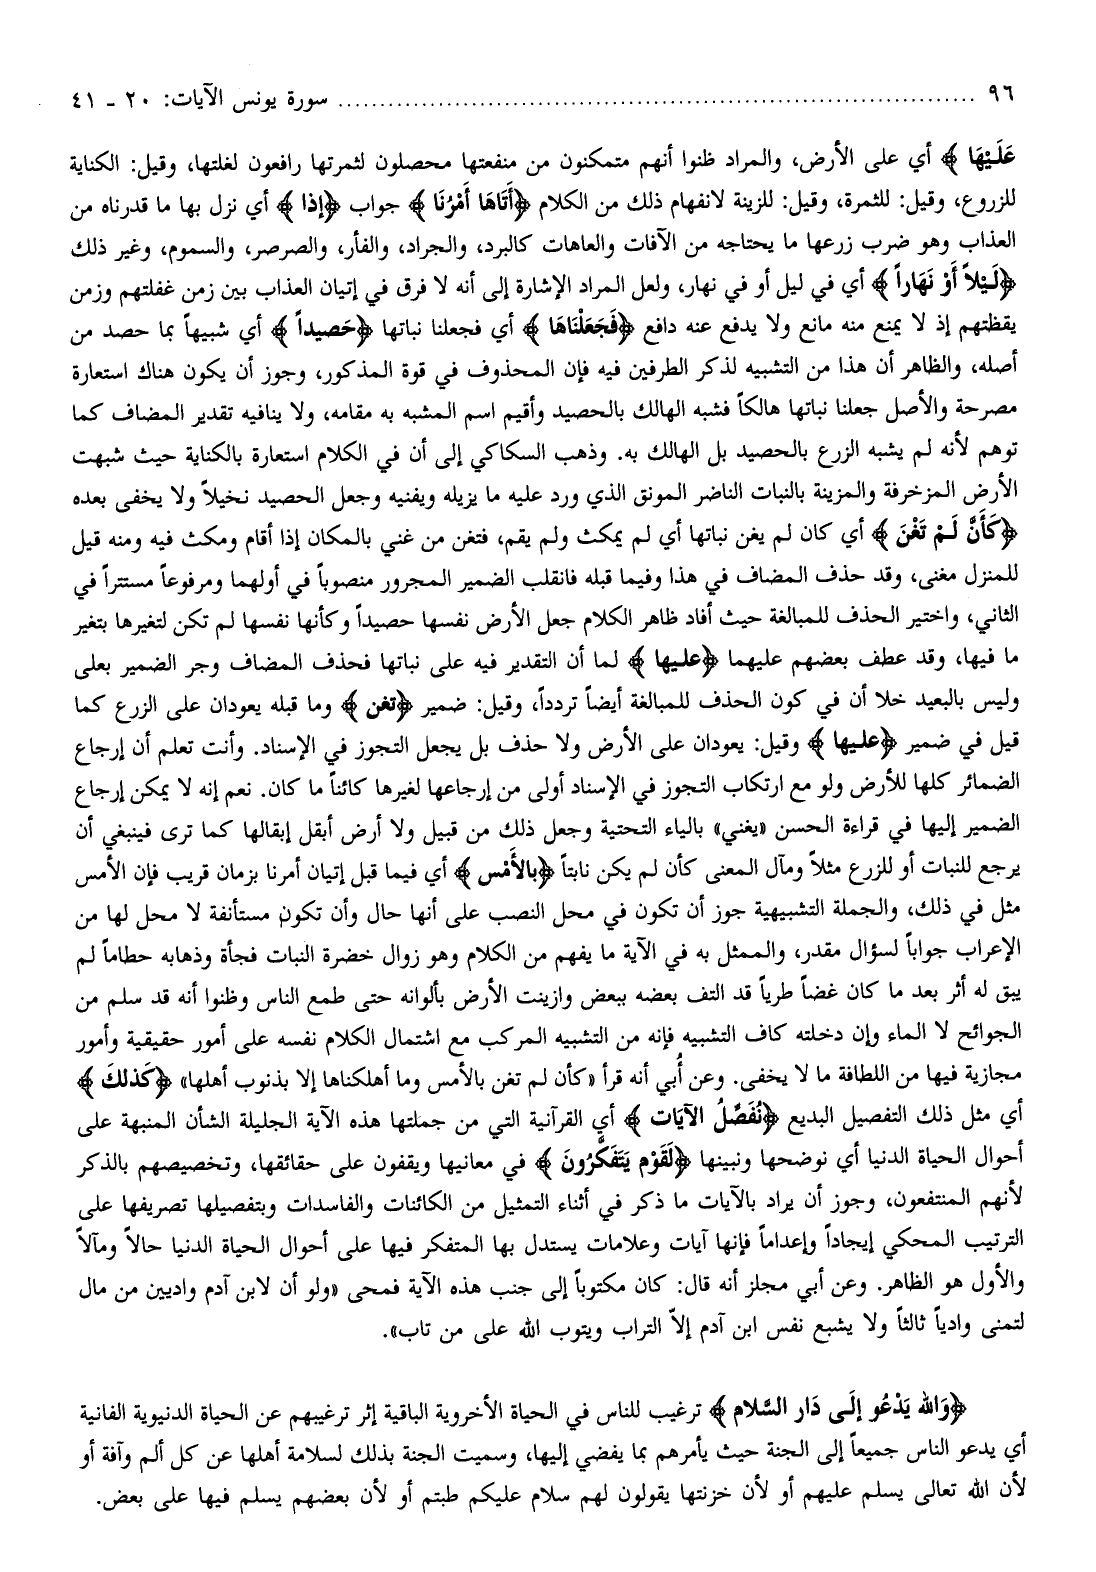 ٩٦ ........ سورة يونس الآيات: ٢٠ - ٤١
عَلَيْهَا ﴾ أي على الأرض، والمراد ظنوا أنهم متمكنون من منفعتها محصلون لثمرتها رافعون لغلتها، وقيل: الكناية
للزروع، وقيل: للثمرة، وقيل: للزينة لانفهام ذلك من الكلام ﴿أَتَاهَا أَمْرُنَا ﴾ جواب ﴿إذا ﴾ أي نزل بها ما قدرناه من
العذاب وهو ضرب زرعها ما يحتاجه من الآفات والعاهات كالبرد، والجراد، والفأر، والصرصر، والسموم، وغير ذلك
﴿لَيْلاً أَوْ نَهَاراً ﴾ أي في ليل أو في نهار، ولعل المراد الإشارة إلى أنه لا فرق في إتيان العذاب بين زمن غفلتهم وزمن
يقظتهم إذ لا يمنع منه مانع ولا يدفع عنه دافع ﴿فَجَعَلْنَاهَا ﴾ أي فجعلنا نباتها ﴿حَصيداً ﴾ أي شبيهاً بما حصد من
أصله، والظاهر أن هذا من التشبيه لذكر الطرفين فيه فإن المحذوف في قوة المذكور، وجوز أن يكون هناك استعارة
مصرحة والأصل جعلنا نباتها هالكاً فشبه الهالك بالحصيد وأقيم اسم المشبه به مقامه، ولا ينافيه تقدير المضاف كما
توهم لأنه لم يشبه الزرع بالحصيد بل الهالك به. وذهب السكاكي إلى أن في الكلام استعارة بالكناية حيث شبهت
الأرض المزخرفة والمزينة بالنبات الناضر المونق الذي ورد عليه ما يزيله ويفنيه وجعل الحصيد نخيلاً ولا يخفى بعده
﴿كَأَنَّ لَمْ تَغْنَ ﴾ أي كان لم يغن نباتها أي لم يمكث ولم يقم، فتغن من غني بالمكان إذا أقام ومكث فيه ومنه قيل
للمنزل مغنى، وقد حذف المضاف في هذا وفيما قبله فانقلب الضمير المجرور منصوباً في أولهما ومرفوعاً مستتراً في
الثاني، واختير الحذف للمبالغة حيث أفاد ظاهر الكلام جعل الأرض نفسها حصيداً وكأنها نفسها لم تكن لتغيرها بتغير
ما فيها، وقد عطف بعضهم عليهما ﴿عليها ﴾ لما أن التقدير فيه على نباتها فحذف المضاف وجر الضمير بعلى
وليس بالبعيد خلا أن في كون الحذف للمبالغة أيضاً تردداً، وقيل: ضمير ﴿تغن ﴾ وما قبله يعودان على الزرع كما
قيل في ضمير ﴿عليها ﴾ وقيل: يعودان على الأرض ولا حذف بل يجعل التجوز في الإسناد. وأنت تعلم أن إرجاع
الضمائر كلها للأرض ولو مع ارتكاب التجوز في الإسناد أولى من إرجاعها لغيرها كائناً ما كان. نعم إنه لا يمكن إرجاع
الضمير إليها في قراءة الحسن «يغني» بالياء التحتية وجعل ذلك من قبيل ولا أرض أبقل إبقالها كما ترى فينبغي أن
يرجع للنبات أو للزرع مثلاً ومآل المعنى كأن لم يكن نابتاً ﴿بالأَمْس ﴾ أي فيما قبل إتيان أمرنا بزمان قريب فإن الأمس
مثل في ذلك، والجملة التشبيهية جوز أن تكون في محل النصب على أنها حال وأن تكون مستأنفة لا محل لها من
الإعراب جواباً لسؤال مقدر، والممثل به في الآية ما يفهم من الكلام وهو زوال خضرة النبات فجأة وذهابه حطاماً لم
يبق له أثر بعد ما كان غضاً طرياً قد التف بعضه ببعض وازينت الأرض بألوانه حتى طمع الناس وظنوا أنه قد سلم من
الجوائح لا الماء وإن دخلته كاف التشبيه فإنه من التشبيه المركب مع اشتمال الكلام نفسه على أمور حقيقية وأمور
مجازية فيها من اللطافة ما لا يخفى. وعن أُبي أنه قرأ «كأن لم تغن بالأمس وما أهلكناها إلا بذنوب أهلها» ﴿كَذلكَ ﴾
أي مثل ذلك التفصيل البديع ﴿نُفَصِّلُ الآيَات ﴾ أي القرآنية التي من جملتها هذه الآية الجليلة الشأن المنبهة على
أحوال الحياة الدنيا أي نوضحها ونبينها ﴿لقَوْم يَتَفَكَّرُونَ ﴾ في معانيها ويقفون على حقائقها، وتخصيصهم بالذكر
لأنهم المنتفعون، وجوز أن يراد بالآيات ما ذكر في أثناء التمثيل من الكائنات والفاسدات وبتفصيلها تصريفها على
الترتيب المحكي إيجاداً وإعداماً فإنها آيات وعلامات يستدل بها المتفكر فيها على أحوال الحياة الدنيا حالاً ومآلاً
والأول هو الظاهر. وعن أبي مجلز أنه قال: كان مكتوباً إلى جنب هذه الآية فمحى «ولو أن لابن آدم واديين من مال
لتمنى وادياً ثالثاً ولا يشبع نفس ابن آدم إلاّ التراب ويتوب الله على من تاب».
﴿وَالله يَدْعُو إلَى دَار السَّلام ﴾ ترغيب للناس في الحياة الأخروية الباقية إثر ترغيبهم عن الحياة الدنيوية الفانية
أي يدعو الناس جميعاً إلى الجنة حيث يأمرهم بما يفضي إليها، وسميت الجنة بذلك لسلامة أهلها عن كل ألم وآفة أو
لأن الله تعالى يسلم عليهم أو لأن خزنتها يقولون لهم سلام عليكم طبتم أو لأن بعضهم يسلم فيها على بعض.